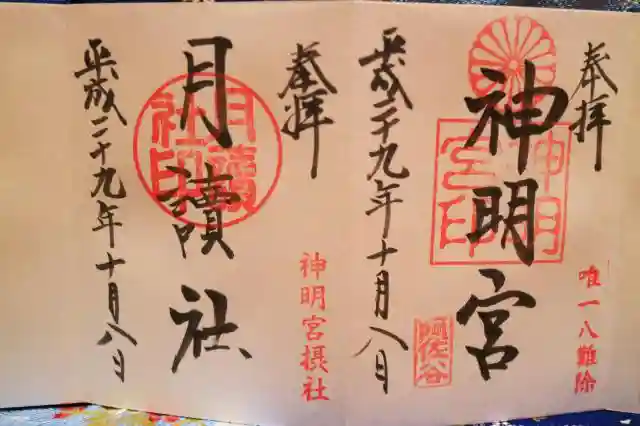 奉拝
唯一八難除
神明宮
神明宮印
阿佐谷
平成二十九年十月八日
奉拝
神明宮摂社
月讀社
月讀社印
平成二十九年十月八日